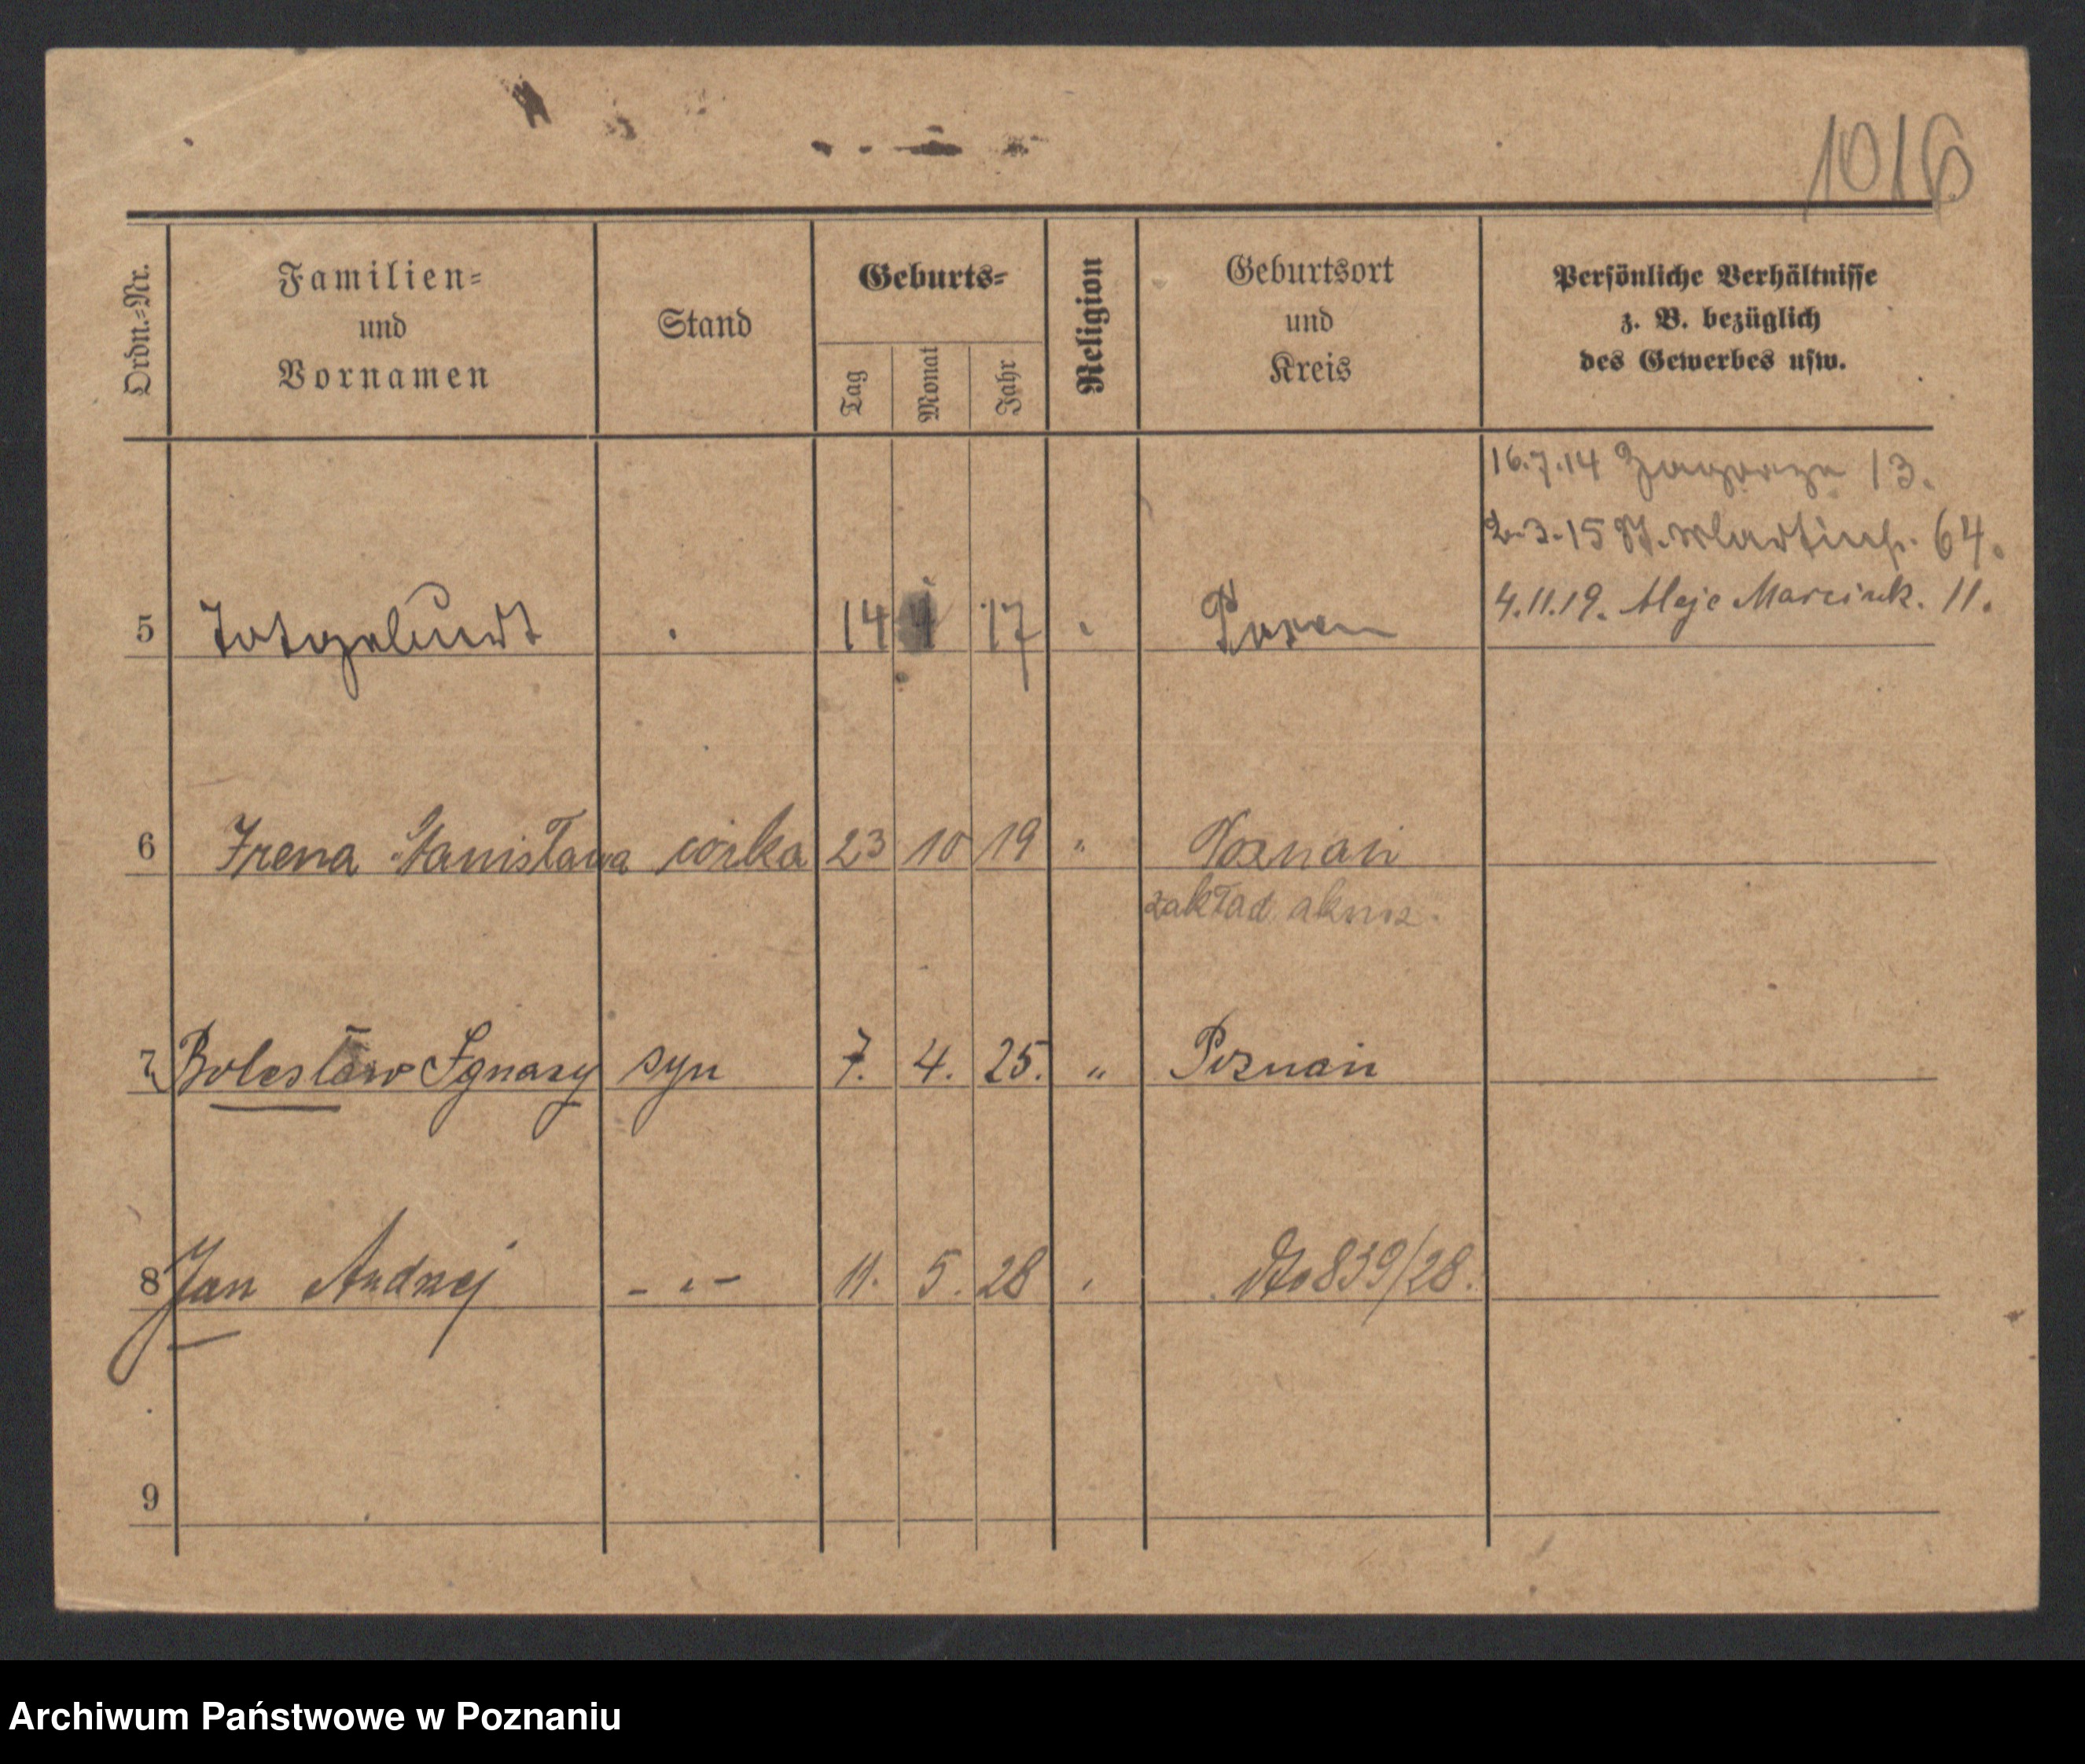 1016
Ordn.-Nr.
Familien-
und
Vornamen
Stand
Geburts-
Tag
Monat
Jahr
Religion
Geburtsort
und
Kreis
Persönliche Verhältnisse
z. B. bezüglich
des Gewerbes usw.
16.7.14 Zagorze 13.
2.3.15 St. Martinstr. 64.
4.11.19. Aleje Marcink. 11.
5 Totgeburt 14 4 17 " Posen
6 Irena Stanisława córka 23 10 19 " Poznań
zakład akusz.
7 Bolesław Ignacy syn 7. 4. 25. " Poznań
8 Jan Andrzej - " - 11. 5. 28 " 839/28.
9
Archiwum Państwowe w Poznaniu